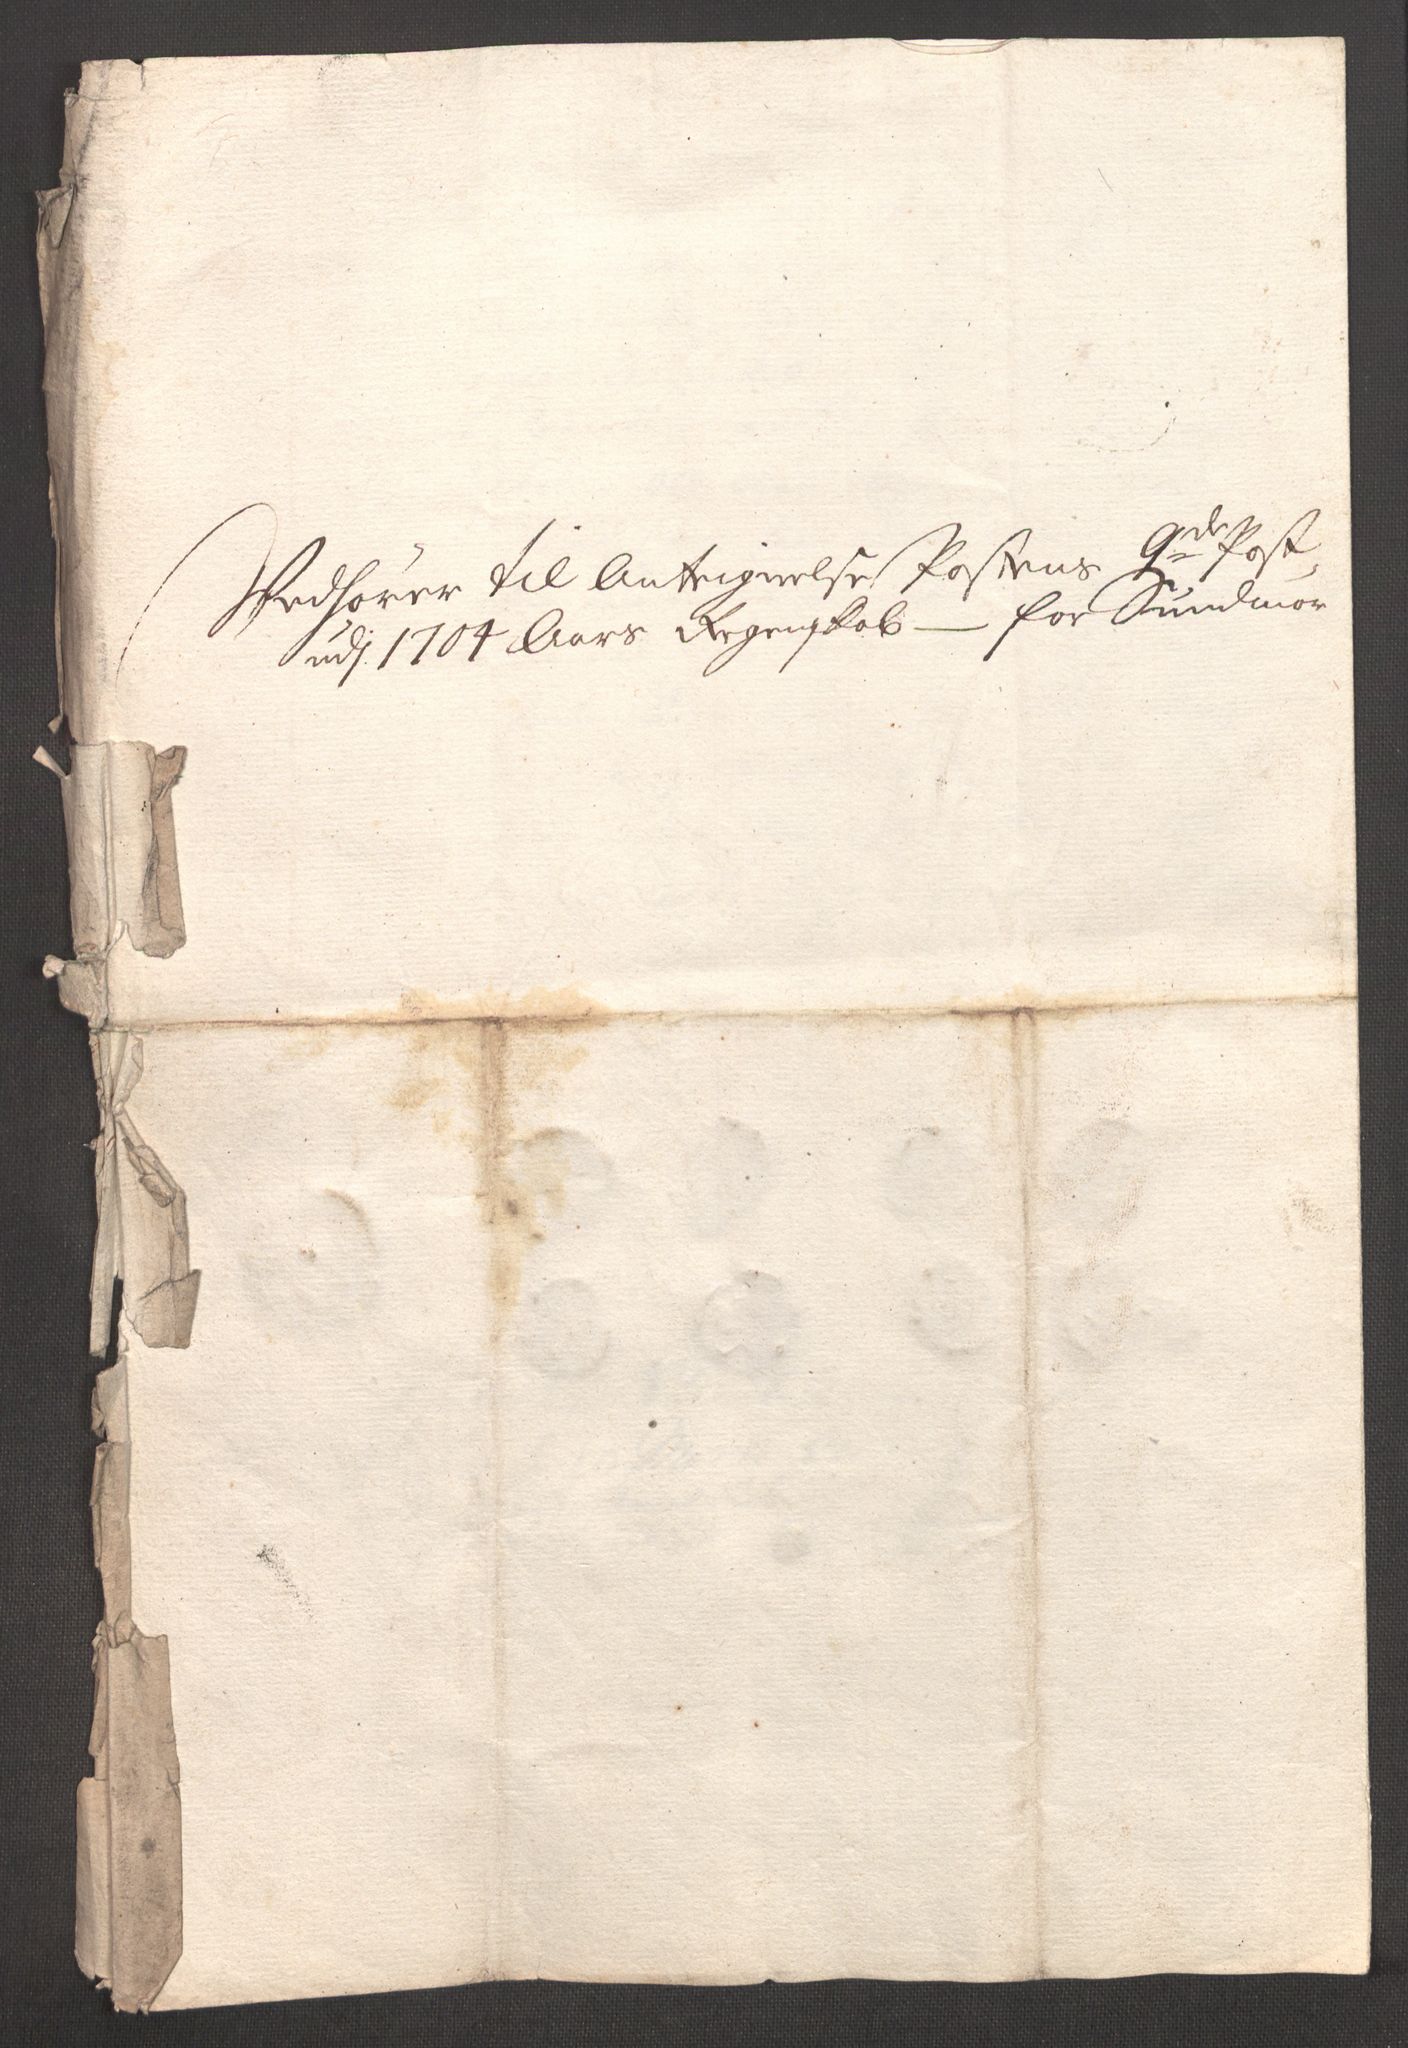 Vedhører til Anteignelse Postens 9de Post
udj 1704 Aars Regenskab — for Sundmör